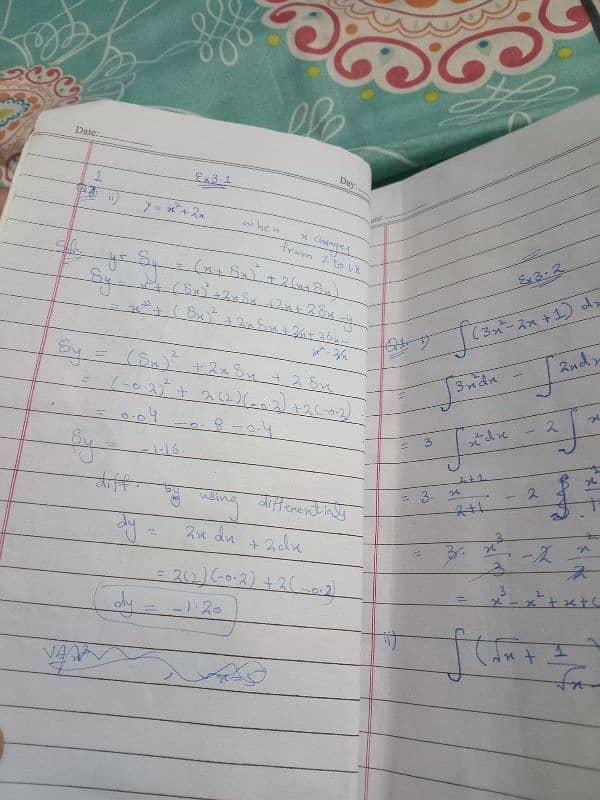 Date:
Day:
Ex 3.1
Q1 ii) y = x² + 2x when x changes
from 2 to 1.8
Sol. y + δy = (x + δx)² + 2(x + δx)
δy = x² + (δx)² + 2xδx + 2x + 2δx - y
= x² + (δx)² + 2xδx + 2x + 2δx -
x² - 2x
δy = (δx)² + 2xδx + 2δx
= (-0.2)² + 2(2)(-0.2) + 2(-0.2)
= 0.04 - 0.8 - 0.4
δy = -1.16
diff. by using differentials
dy = 2x dx + 2dx
= 2(2)(-0.2) + 2(-0.2)
dy = -1.20
Ex 3.2
Q1. i) ∫(3x² - 2x + 1) dx
= ∫3x²dx - ∫2xdx
= 3 ∫x²dx - 2 ∫x
= 3. x²⁺¹/2+1 - 2
= 3. x³/3 - 2 x²/2
= x³ - x² + x + c
ii) ∫(√x + 1/√x)